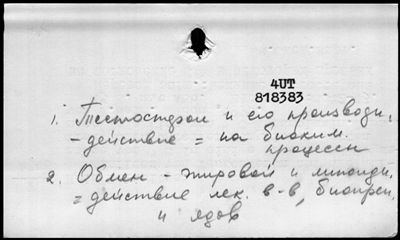 4UT
818383
1. Тестостерон и его производн.
- действие = на биохим.
процессы
2. Обмен - жировой и липоидн.
= действие лек. в-в, биопреп.
и ядов